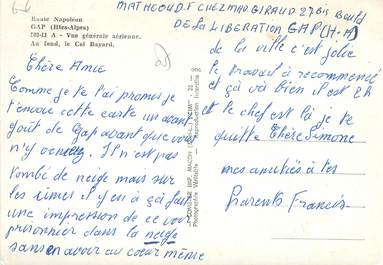 MATHEOUD.F CHEZ MAD GIRAUD 27 bis Bould
DE LA LIBERATION GAP (H-A)
Route Napoléon
GAP (Htes-Alpes)
A - Vue générale aérienne.
Au fond, le Col Bayard.
Chère Amie
Comme je te l'ai promis je
t'envoie cette carte un avant
goût de Gap avant que vous
n'y veniez. Il n'est pas
tombé de neige mais sur
les cimes il y en à ça fait
une impression de ce voir
prisonnier dans la neige
sans en avoir au cœur même
de la ville c'est jolie
le travail à recommencé
et çà và bien il est 2H
et le chef est là je te
quitte Chère Simone
mes amitiés à tes
Parents Francis
Reproduction Interdite